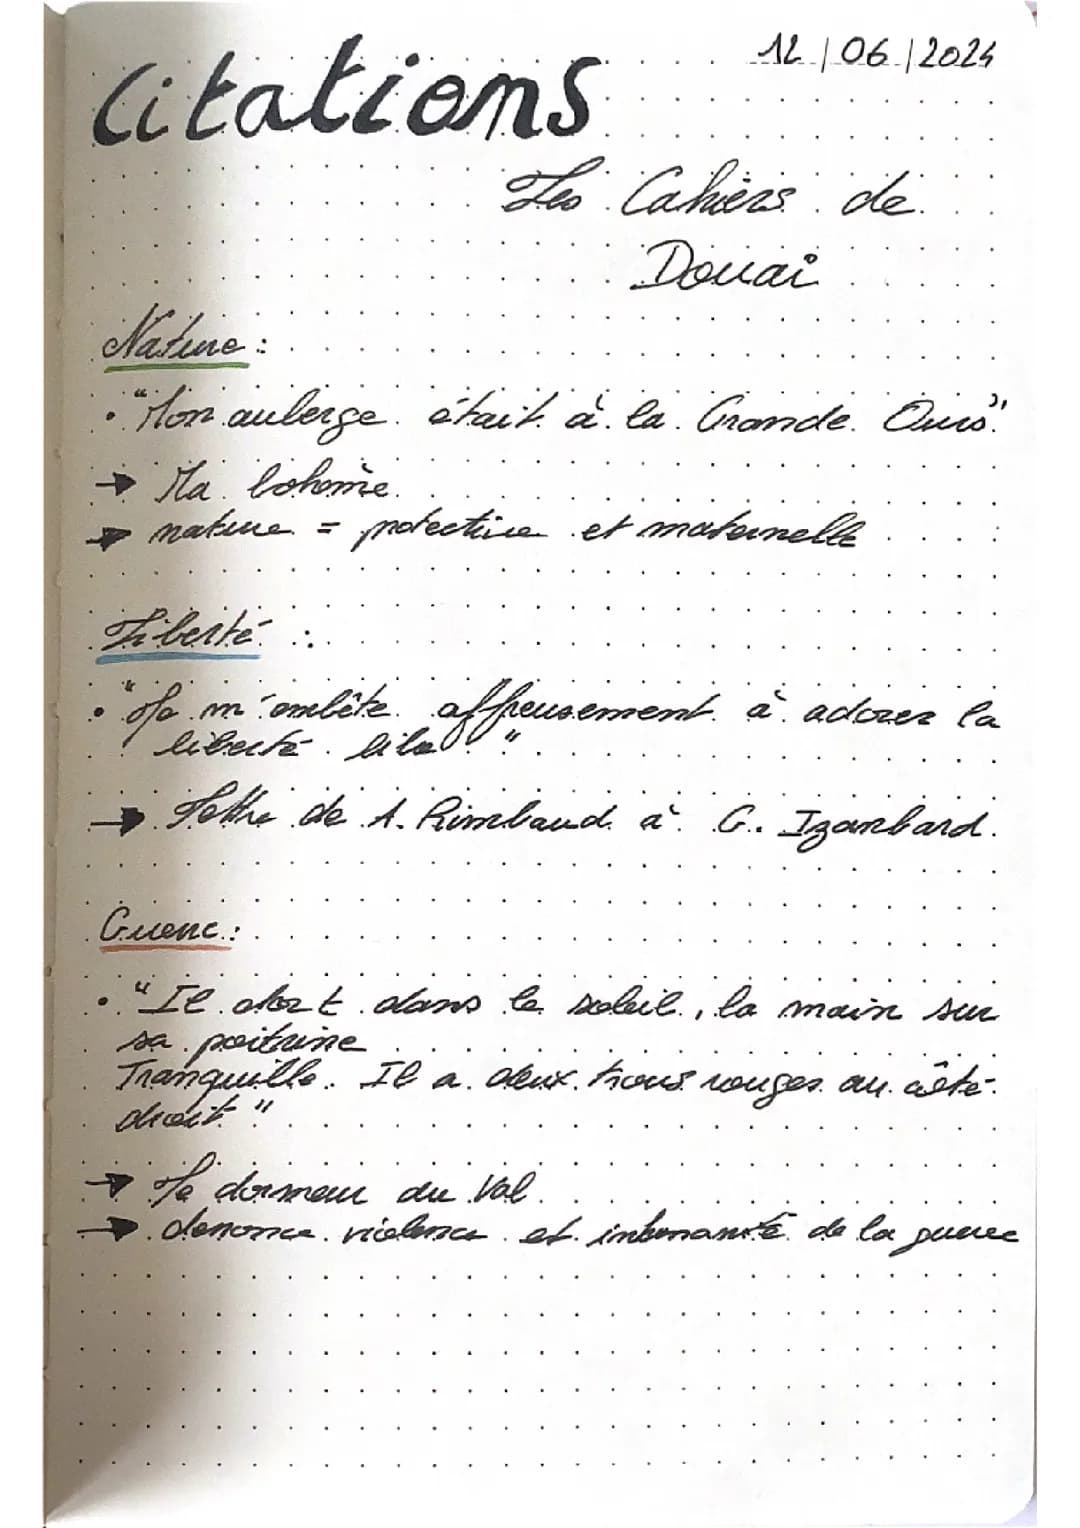 Citations
12/06/2024
Les Cahiers de
Douai
Nature :
• "Mon auberge était à la Grande Ours".
→ Ma bohème
→ nature = protectrice et maternelle
Liberté :
• "Je m'embête affreusement à adorer la
liberté libre".
→ Lettre de A. Rimbaud à G. Izambard.
Guerre :
• "Il dort dans le soleil, la main sur
sa poitrine
Tranquille. Il a deux trous rouges au côté
droit"
→ Le dormeur du Val
→ dénonce violence et inhumanité de la guerre